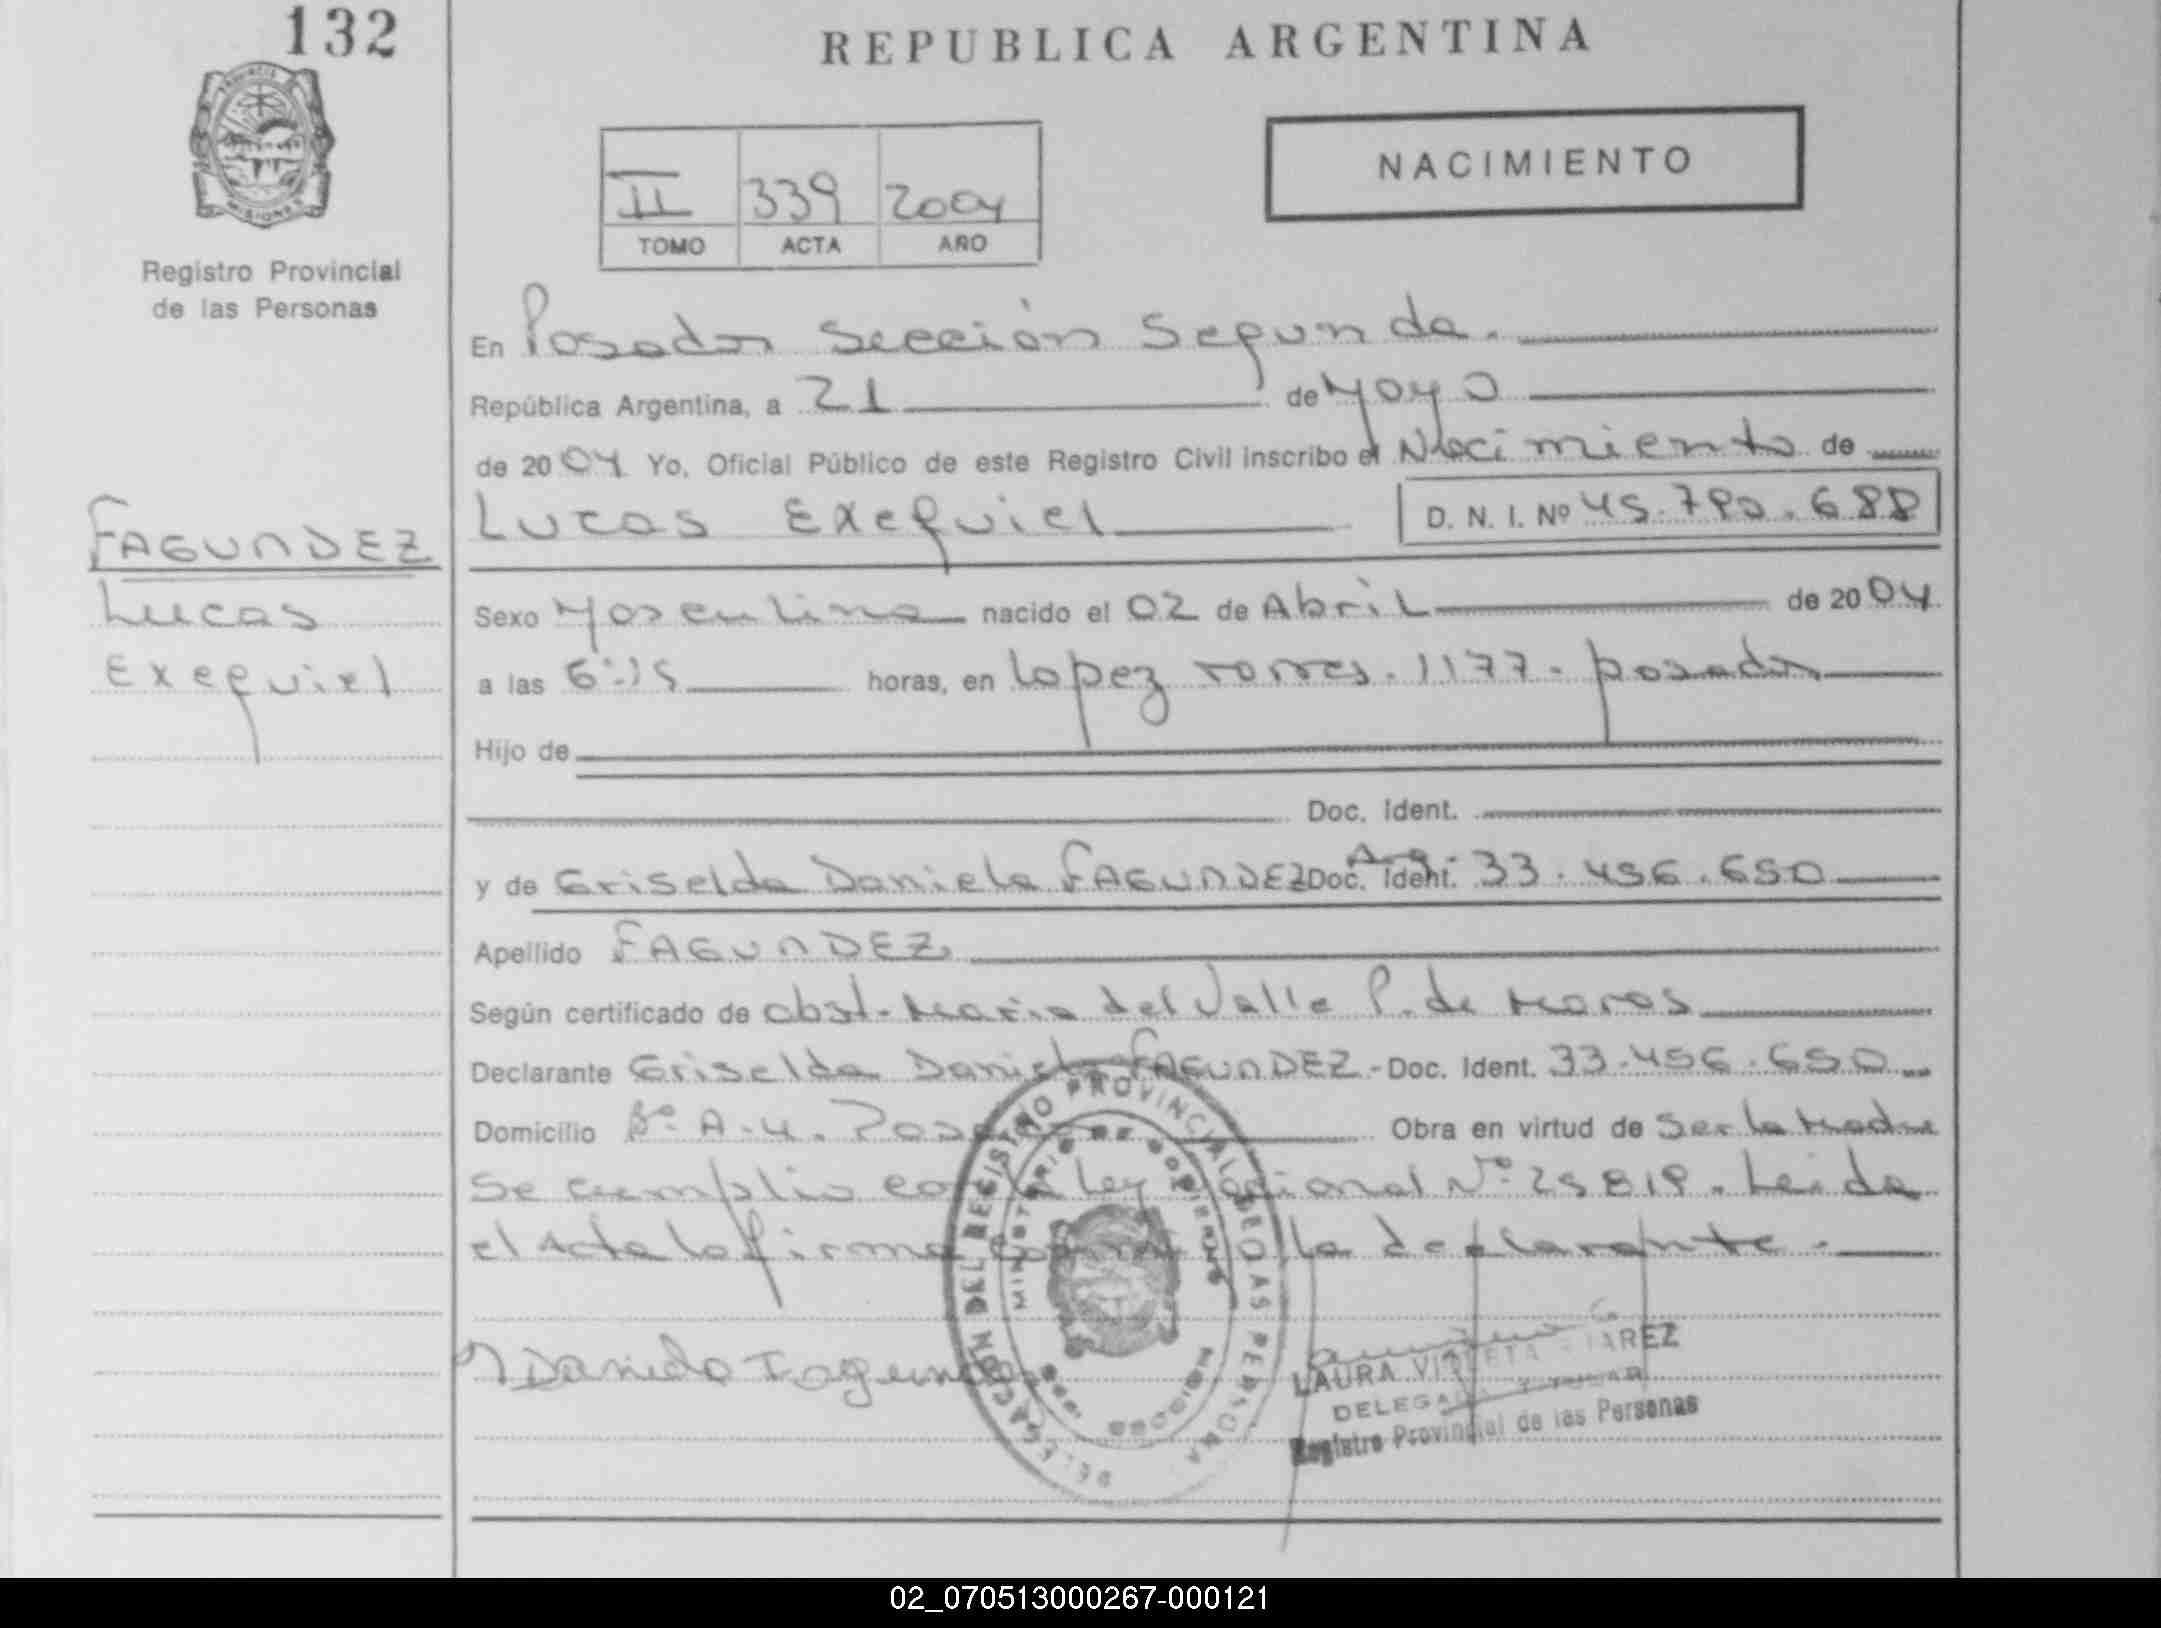 132
REPUBLICA ARGENTINA
PROVINCIA
MISIONES
NACIMIENTO
II 339 2004
TOMO ACTA AÑO
Registro Provincial
de las Personas
En Posadas Sección Segunda.
República Argentina, a 21 de Mayo
de 2004 Yo, Oficial Público de este Registro Civil inscribo el Nacimiento de
FAGUNDEZ
Lucas
Exequiel
Lucas Exequiel D. N. I. Nº 45.792.688
Sexo Masculino nacido el 02 de Abril de 2004
a las 6:15 horas, en Lopez torres. 1177- posadas
Hijo de
Doc. Ident.
y de Griselda Daniela FAGUNDEZ Doc. Ident. Arg. 33.456.650
Apellido FAGUNDEZ
Según certificado de obst. Maria del Valle P. de Maros
Declarante Griselda Daniela FAGUNDEZ - Doc. Ident. 33.456.650
Domicilio Bº A.4. Posadas Obra en virtud de Ser la Madre
Se cumplio con la Ley Nacional Nº 25819. Leida
el Acta la firma la declarante.
Daniela Fagundez
DELEGACION DEL REGISTRO PROVINCIAL DE LAS PERSONAS
MINISTERIO DE GOBIERNO
MISIONES
LAURA VIOLETA
DELEGADA TITULAR
Registro Provincial de las Personas
02_070513000267-000121